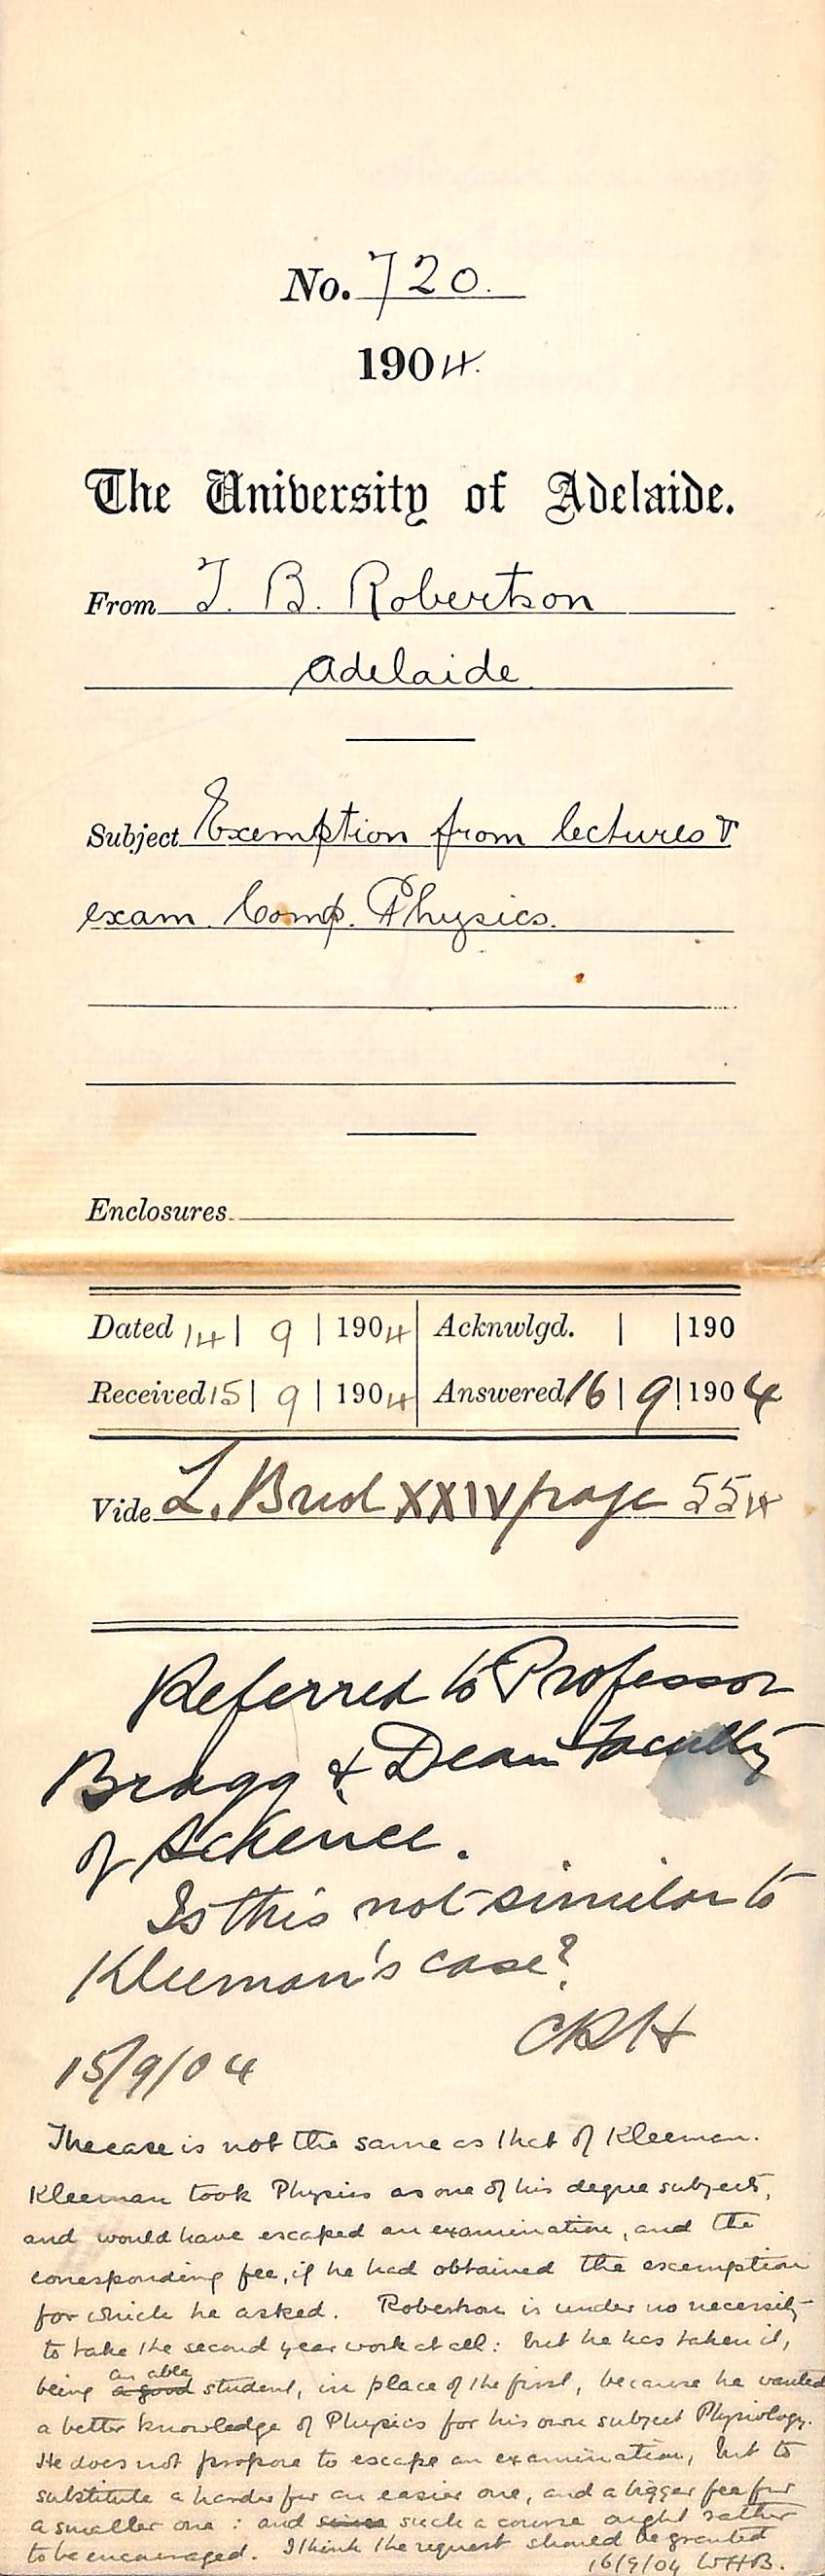 No. 720.
1904.
The University of Adelaide.
From T. B. Robertson
Adelaide
Subject Exemption from lectures &
exam. Comp. Physics.
Enclosures
Dated 14 | 9 | 1904 Acknwlgd. | | 190
Received 15 | 9 | 1904 Answered 16 | 9 | 1904
Vide L. Book XXIV page 554
Referred to Professor
Bragg & Dean Faculty
of Science.
Is this not similar to
Kleeman's case?
CRH
15/9/04
The case is not the same as that of Kleeman.
Kleeman took Physics as one of his degree subjects,
and would have escaped an examination, and the
corresponding fee, if he had obtained the exemption
for which he asked. Robertson is under no necessity
to take the second year work at all: but he has taken it,
being a good an able student, in place of the first, because he wanted
a better knowledge of Physics for his own subject Physiology.
He does not propose to escape an examination, but to
substitute a harder for an easier one, and a bigger fee for
a smaller one: and since such a course ought rather
to be encouraged. I think the request should be granted
16/9/04 WHB.